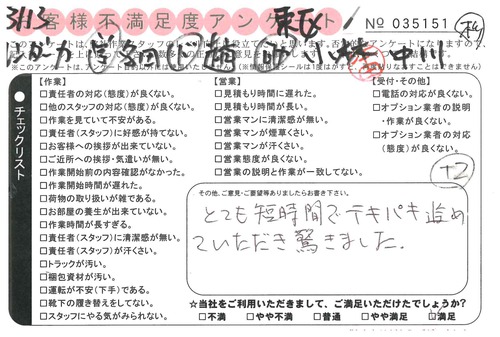 お客様不満足度アンケート
No 035151
3/13
チェックリスト
【作業】
□責任者の対応(態度)が良くない。
□他のスタッフの対応(態度)が良くない。
□作業を見ていて不安がある。
□責任者(スタッフ)に好感が持てない。
□お客様への挨拶が出来ていない。
□ご近所への挨拶・気遣いが無い。
□作業開始前の内容確認がなかった。
□作業開始時間が遅れた。
□荷物の取り扱いが雑である。
□お部屋の養生が出来ていない。
□作業時間が長すぎる。
□責任者(スタッフ)に清潔感が無い。
□責任者(スタッフ)が汗くさい。
□トラックが汚い。
□梱包資材が汚い。
□運転が不安(下手)である。
□靴下の履き替えをしてない。
□スタッフにやる気がみられない。
【営業】
□見積もり時間に遅れた。
□見積もり時間が長い。
□営業マンに清潔感が無い。
□営業マンが煙草くさい。
□営業マンが汗くさい。
□営業態度が良くない。
□営業の説明と作業が一致してない。
【受付・その他】
□電話の対応が良くない。
□オプション業者の説明
・作業が良くない。
□オプション業者の対応
(態度)が良くない。
+2
その他、ご意見・ご要望等ありましたらお書き下さい。
とても短時間でテキパキ進め
ていただき驚きました。
☆当社をご利用いただきまして、ご満足いただけたでしょうか?
□不満 □やや不満 □普通 □やや満足 □満足